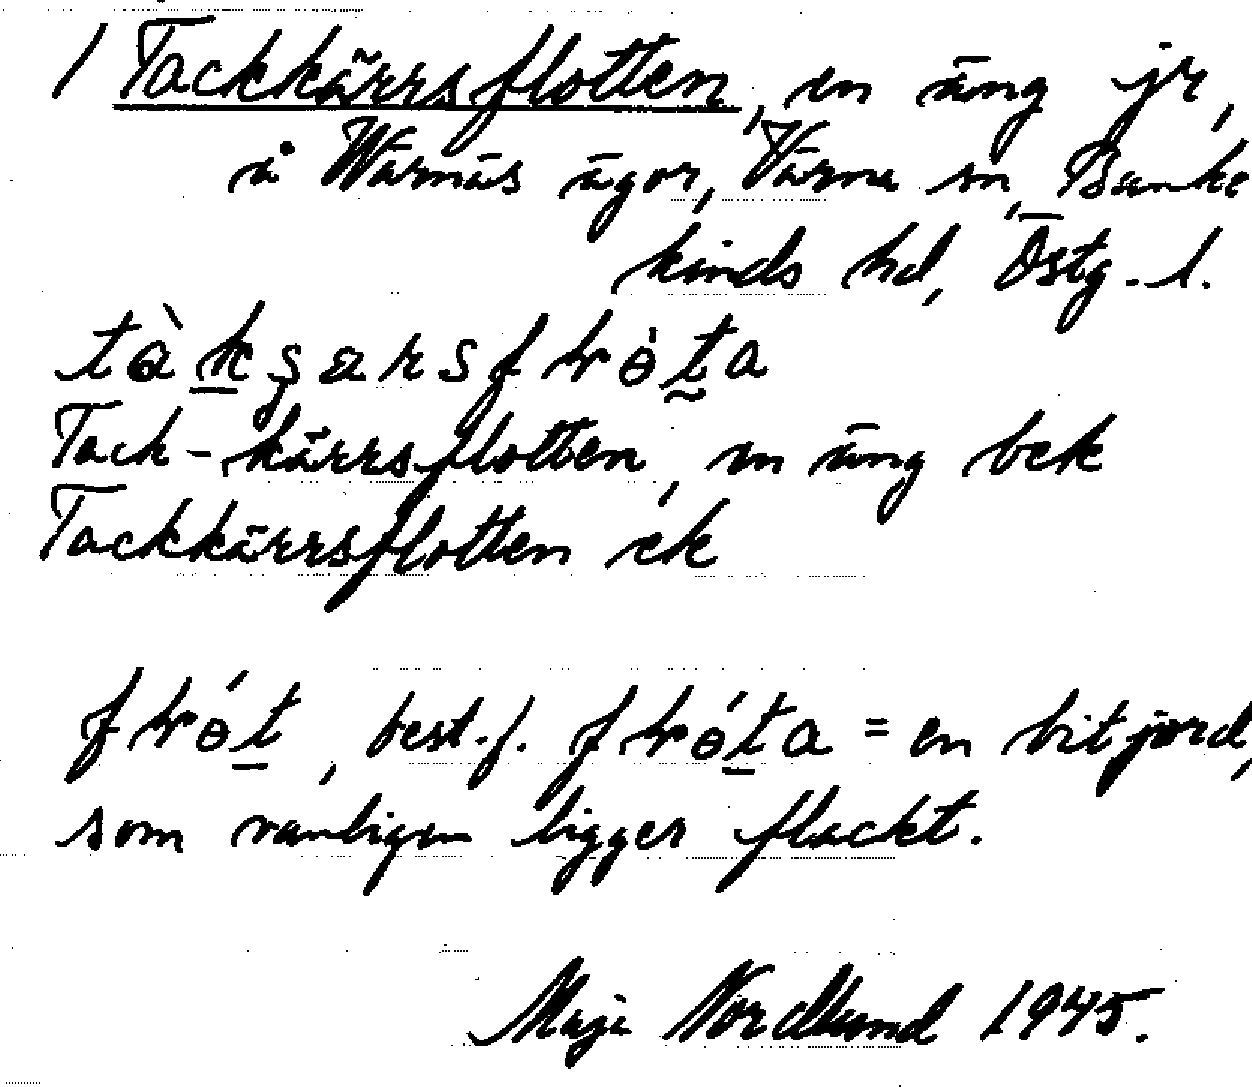 / Tackkärrsflotten, en äng jr,
å Wärnäs ägor, Värna sn, Banke
kinds hd, Östg.-l.
Tack-kärrsflotten, en äng bek
Tackkärrsflotten ek
best.f. = en bit jord,
som vanligen ligger flackt.
Maja Nordlund 1945.